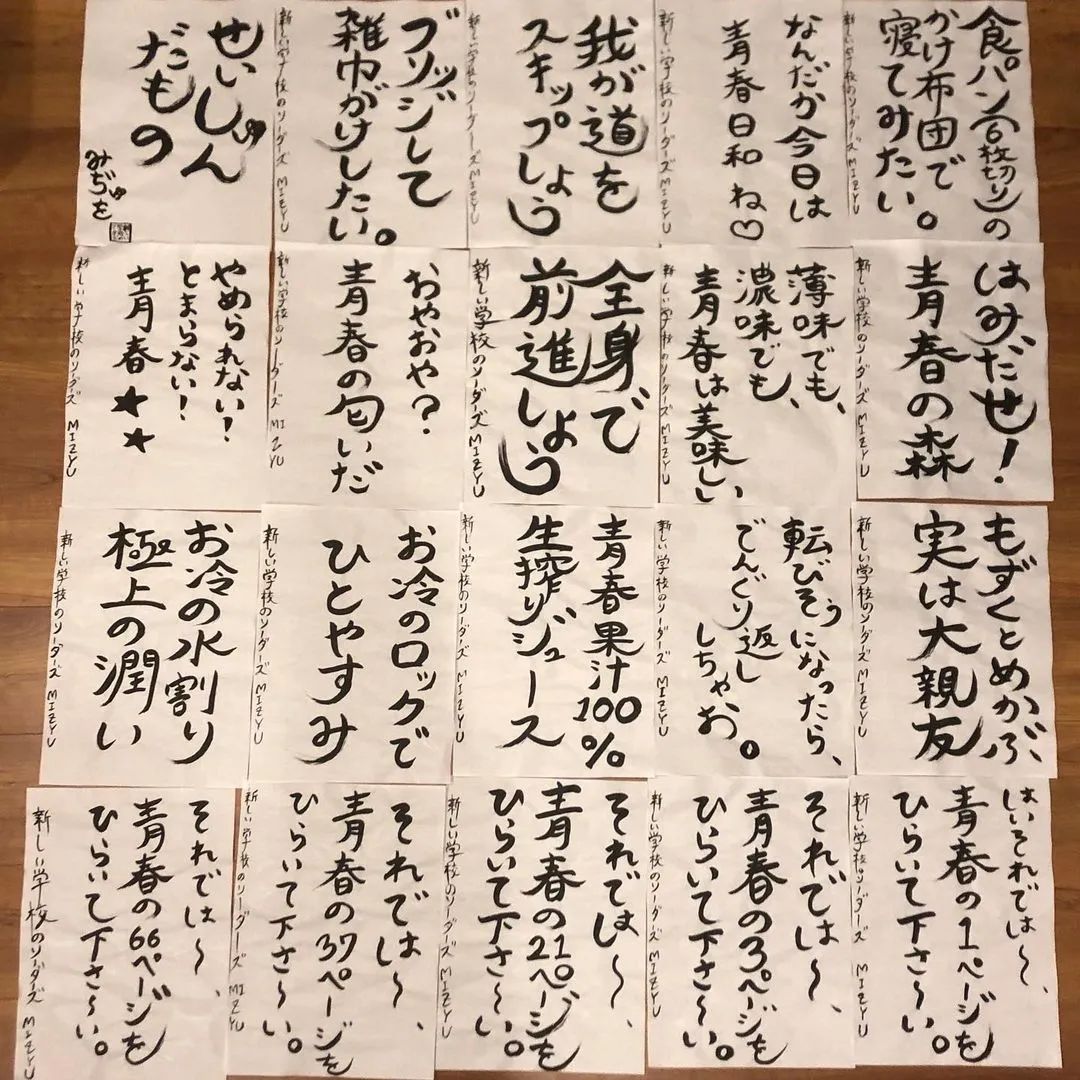 食パン(6枚切り)の
かけ布団で
寝てみたい。
新しい学校のリーダーズ MIZYU
なんだか今日は
青春日和ね♡
新しい学校のリーダーズ MIZYU
我が道を
スキップしよう
新しい学校のリーダーズ MIZYU
ブリッジして
雑巾がけしたい。
新しい学校のリーダーズ MIZYU
せいしゅん
だもの
みぢゅを
はみだせ!
青春の森
新しい学校のリーダーズ MIZYU
薄味でも、
濃味でも、
青春は美味しい
新しい学校のリーダーズ MIZYU
全身で
前進しよう
新しい学校のリーダーズ MIZYU
おやおや?
青春の匂いだ
新しい学校のリーダーズ MIZYU
やめられない!
とまらない!
青春★★
新しい学校のリーダーズ MIZYU
もずくとめかぶ、
実は大親友
新しい学校のリーダーズ MIZYU
転びそうになったら、
でんぐり返し
しちゃお。
新しい学校のリーダーズ MIZYU
青春果汁100%
生搾りジュース
新しい学校のリーダーズ MIZYU
お冷のロックで
ひとやすみ
新しい学校のリーダーズ MIZYU
お冷の水割り
極上の潤い
新しい学校のリーダーズ MIZYU
はいそれでは〜、
青春の1ページを
ひらいて下さ〜い。
新しい学校のリーダーズ MIZYU
それでは〜、
青春の3ページを
ひらいて下さ〜い。
新しい学校のリーダーズ MIZYU
それでは〜、
青春の21ページを
ひらいて下さ〜い。
新しい学校のリーダーズ MIZYU
それでは〜、
青春の37ページを
ひらいて下さ〜い。
新しい学校のリーダーズ MIZYU
それでは〜、
青春の66ページを
ひらいて下さ〜い。
新しい学校のリーダーズ MIZYU